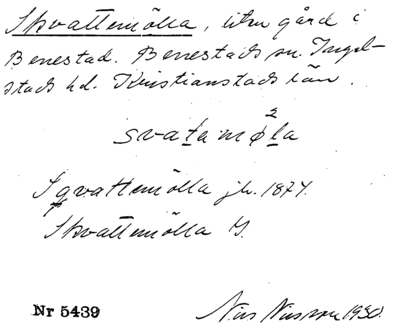 Skvattemölla, liten gård i
Benestad. Benestads sn. Ingel-
stads hd. Kristianstads län.
svatamø²la
Sqvattemölla jb. 1877.
Skvattemölla
Nr 5439 Nils Nilsson 1930.